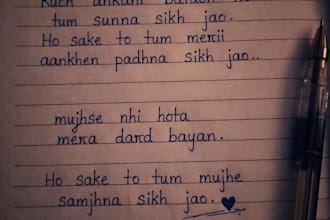 Kuch ankahi baatein ko
tum sunna sikh jao.
Ho sake to tum merii
aankhen padhna sikh jao..
mujhse nhi hota
mera dard bayan.
Ho sake to tum mujhe
samjhna sikh jao.